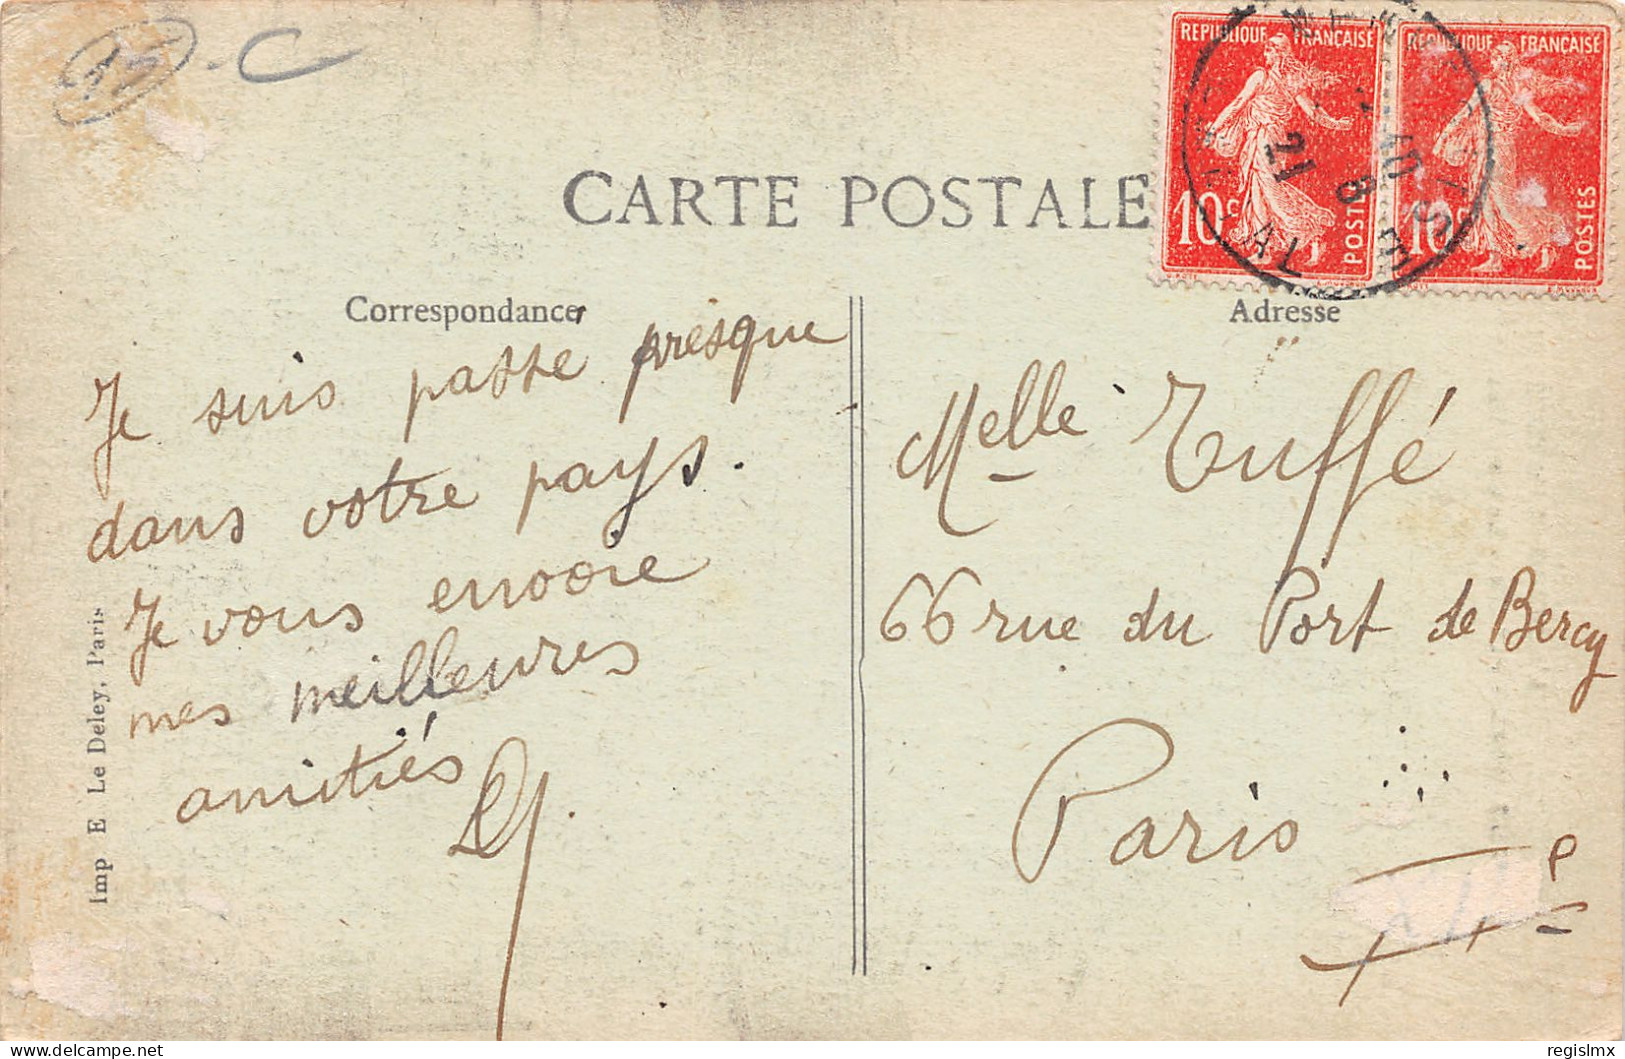 12 - C
CARTE POSTALE
REPUBLIQUE FRANÇAISE
10c POSTES
REPUBLIQUE FRANÇAISE
10c POSTES
21 8
Correspondance
Adresse
Je suis passé presque
dans votre pays.
Je vous envoie
mes meilleures
amitiés
Melle Tuffé
66 rue du Port de Bercy
Paris
XII e
Imp E Le Deley, Paris
regislmx